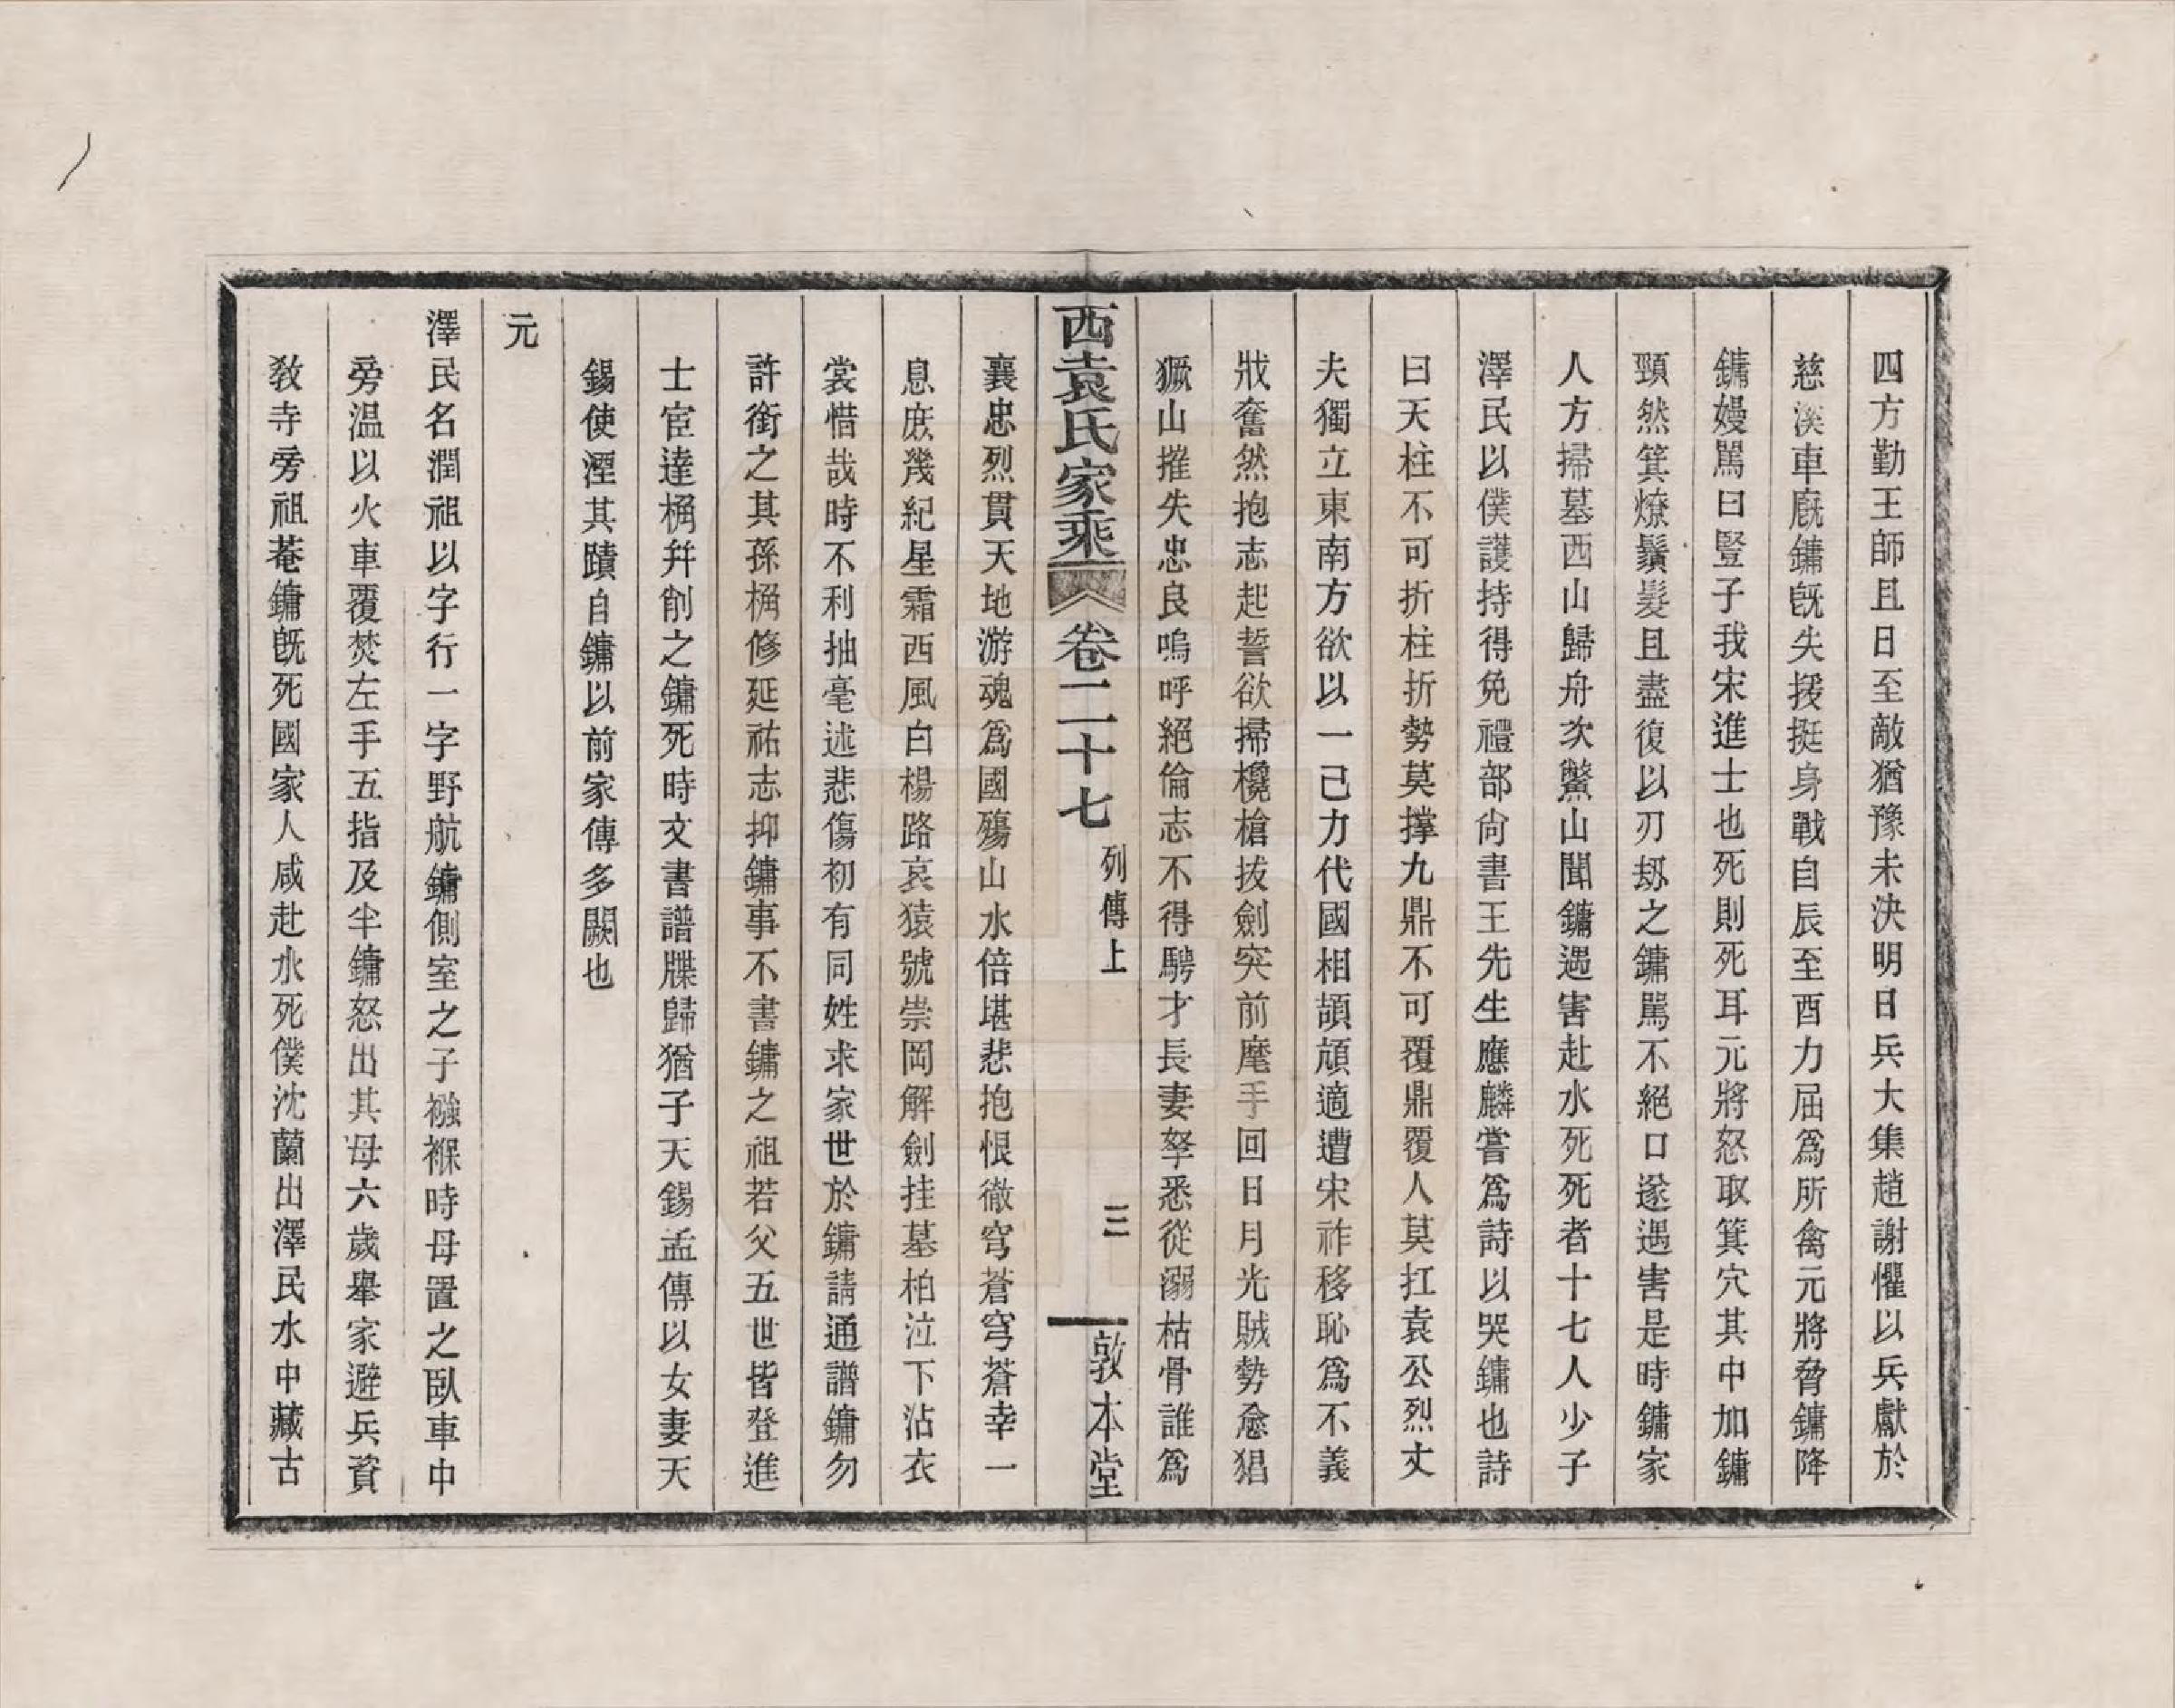 四方勤王師且日至敵猶豫未決明日兵大集趙謝懼以兵獻於
慈溪車廐鏞旣失援挺身戰自辰至酉力屈爲所禽元將脅鏞降
鏞嫚罵曰豎子我宋進士也死則死耳元將怒取箕穴其中加鏞
頸然箕燎鬚髮且盡復以刃刼之鏞罵不絕口遂遇害是時鏞家
人方掃墓西山歸舟次鱉山聞鏞遇害赴水死死者十七人少子
澤民以僕護持得免禮部尙書王先生應麟嘗爲詩以哭鏞也詩
曰天柱不可折柱折勢莫撐九鼎不可覆鼎覆人莫扛袁公烈丈
夫獨立東南方欲以一己力代國相頡頏適遭宋祚移恥爲不義
戕奮然抱志起誓欲掃欃槍拔劍突前麾手回日月光賊勢愈猖
獗山摧失忠良嗚呼絕倫志不得騁才長妻孥悉從溺枯骨誰爲
西袁氏家乘 卷二十七 列傳上 三 敦本堂
襄忠烈貫天地游魂爲國殤山水倍堪悲抱恨徹穹蒼穹蒼幸一
息庶幾紀星霜西風白楊路哀猿號崇岡解劍挂墓柏泣下沾衣
裳惜哉時不利抽毫述悲傷初有同姓求家世於鏞請通譜鏞勿
許銜之其孫桷修延祐志抑鏞事不書鏞之祖若父五世皆登進
士宦達桷幷削之鏞死時文書譜牒歸猶子天錫孟傳以女妻天
錫使湮其蹟自鏞以前家傳多闕也
元
澤民名潤祖以字行一字野航鏞側室之子襁褓時母置之臥車中
旁温以火車覆焚左手五指及半鏞怒出其母六歲舉家避兵資
敎寺旁祖菴鏞旣死國家人咸赴水死僕沈蘭出澤民水中藏古